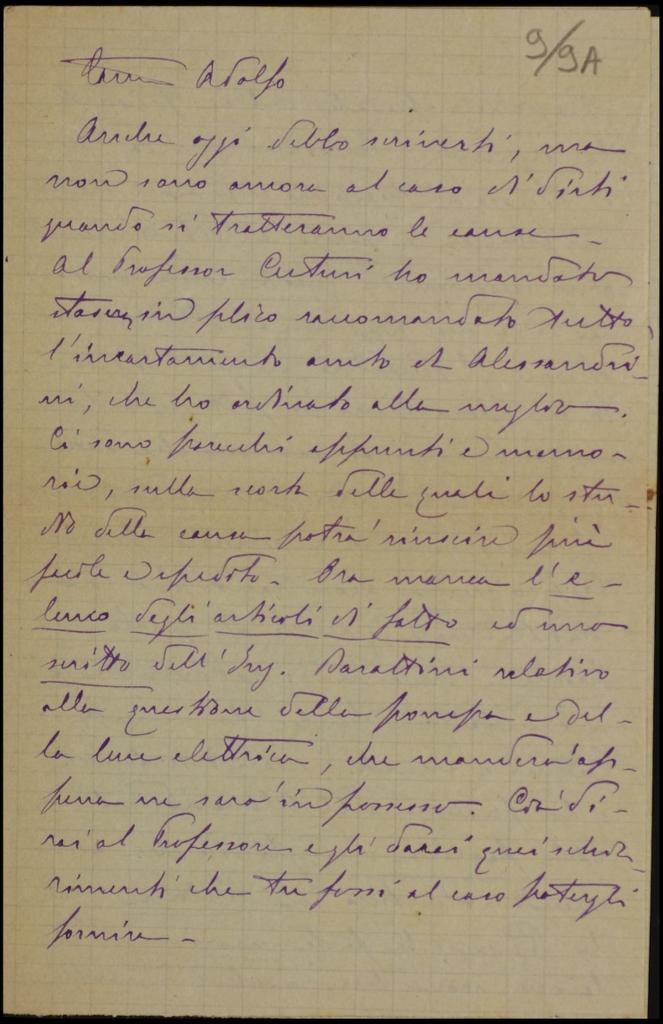 9/9A
Caro Adolfo
Anche oggi debbo scriverti, ma
non sono ancora al caso di dirti
quando si tratteranno le cause.
Al Professor Cuturi ho mandato
stasera, in plico raccomandato tutto
l'incartamento conto di Alessandri-
ni, che ho ordinato alla meglio.
Ci sono parecchi appunti e memo-
rie, sulla scorta delle quali lo stu-
dio della causa potrà riuscire più
facile e spedito. Ora manca l'e-
lenco degli articoli di fatto ed uno
scritto dell'Ing. Barattini relativo
alla questione della pompa e del-
la luce elettrica, che manderò ap-
pena ne sarò in possesso. Così di-
rai al Professore e gli darai quei schia-
rimenti che tu fossi al caso potergli
fornire -